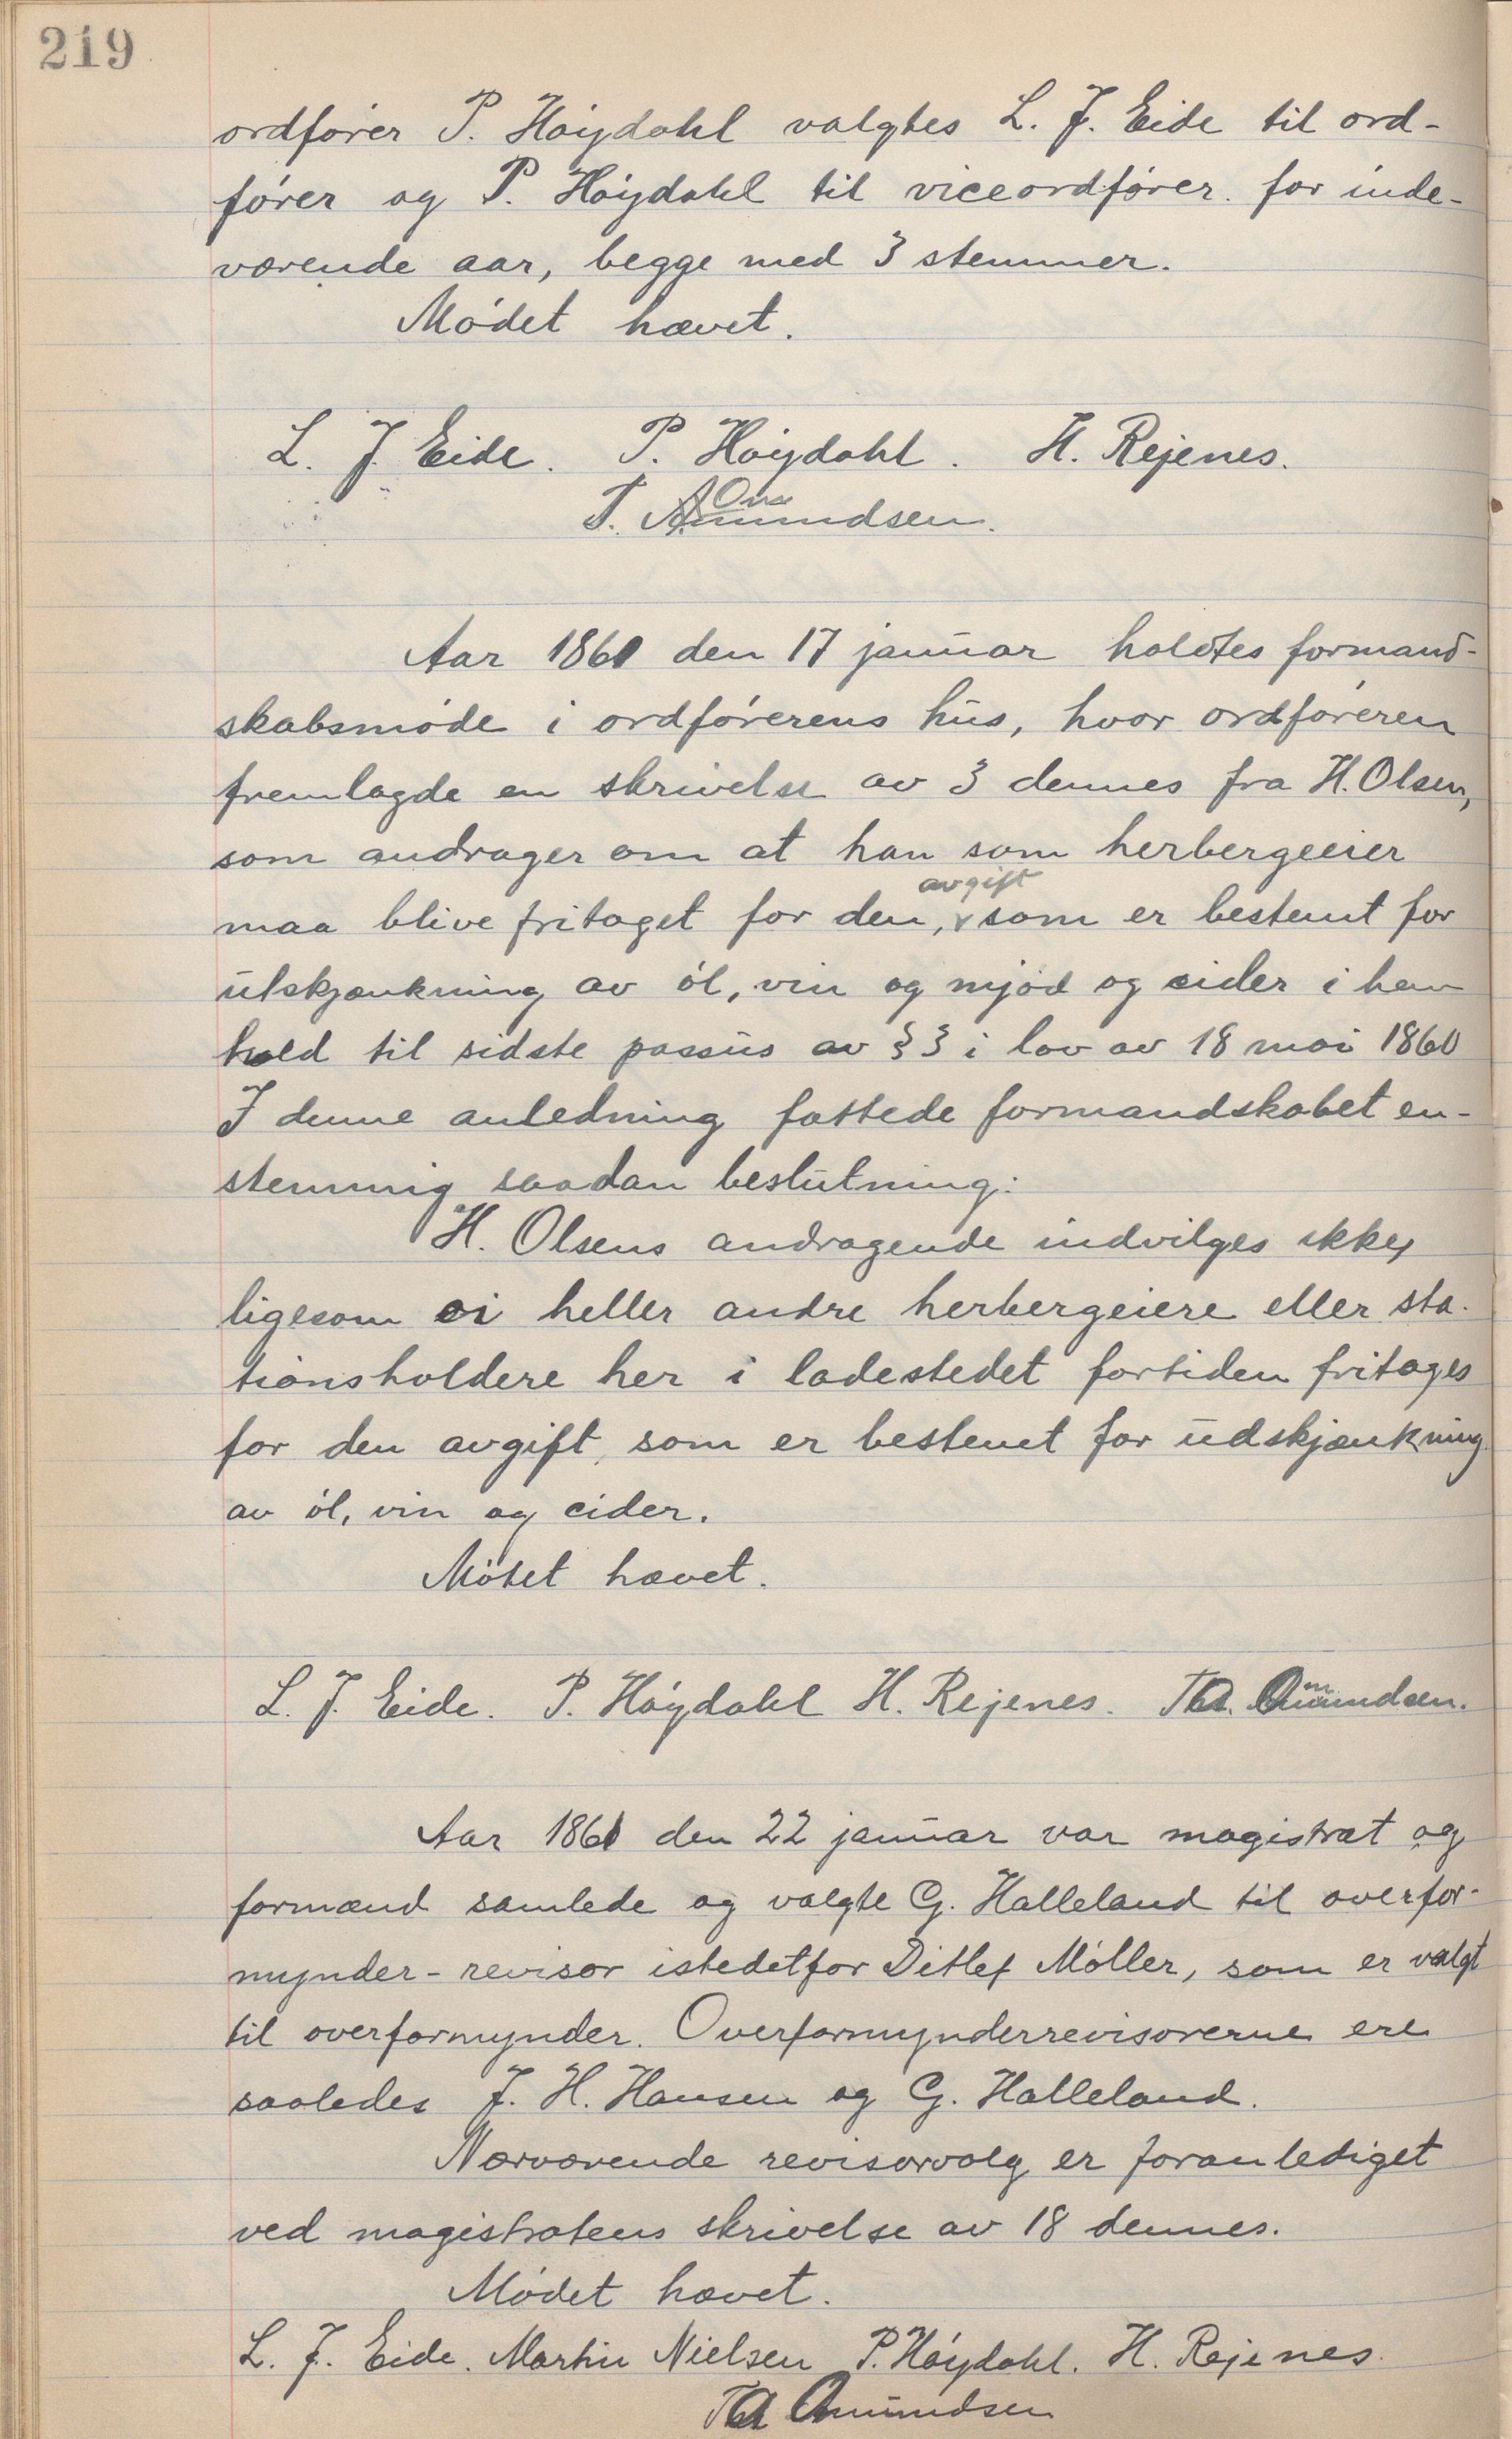 219
ordfører P. Høydahl valgtes L. J. Eide til ord-
fører og P. Høydahl til viceordfører for inde-
værende aar, begge med 3 stemmer.
Mødet hævet.
L. J. Eide. P. Høydahl. H. Rejenes.
T. Amundsen.
Aar 1861 den 17 januar holdtes formand-
skabsmøde i ordførerens hus, hvor ordføreren
fremlagde en skrivelse av 3 dennes fra H. Olsen,
som andrager om at han som herbergeeier
avgift
maa blive fritaget for den, som er bestemt for
utskjænkning av øl, vin og mjød og cider i hen
hold til sidste passus av § 3 i lov av 18 mai 1860
I denne anledning fattede formandskabet en-
stemmig saadan beslutning:
H. Olsens andragende indvilges ikke,
ligesom ei heller andre herbergeiere eller sta-
tionsholdere her i ladestedet fortiden fritages
for den avgift, som er bestemt for udskjænkning
av øl, vin og cider.
Mötet hævet.
L. J. Eide. P. Høydahl H. Rejenes. Amundsen.
Aar 1861 den 22 januar var magistrat og
formænd samlede og valgte G. Halleland til overfor-
mynder-revisor istedetfor Ditlef Møller, som er valgt
til overformynder. Overformynderrevisorerne ere
saaledes J. H. Hansen og G. Halleland.
Nærværende revisorvalg er foranlediget
ved magistratens skrivelse av 18 dennes.
Mødet hævet.
L. J. Eide. Martin Nielsen P. Høydahl. H. Rejenes.
Amundsen